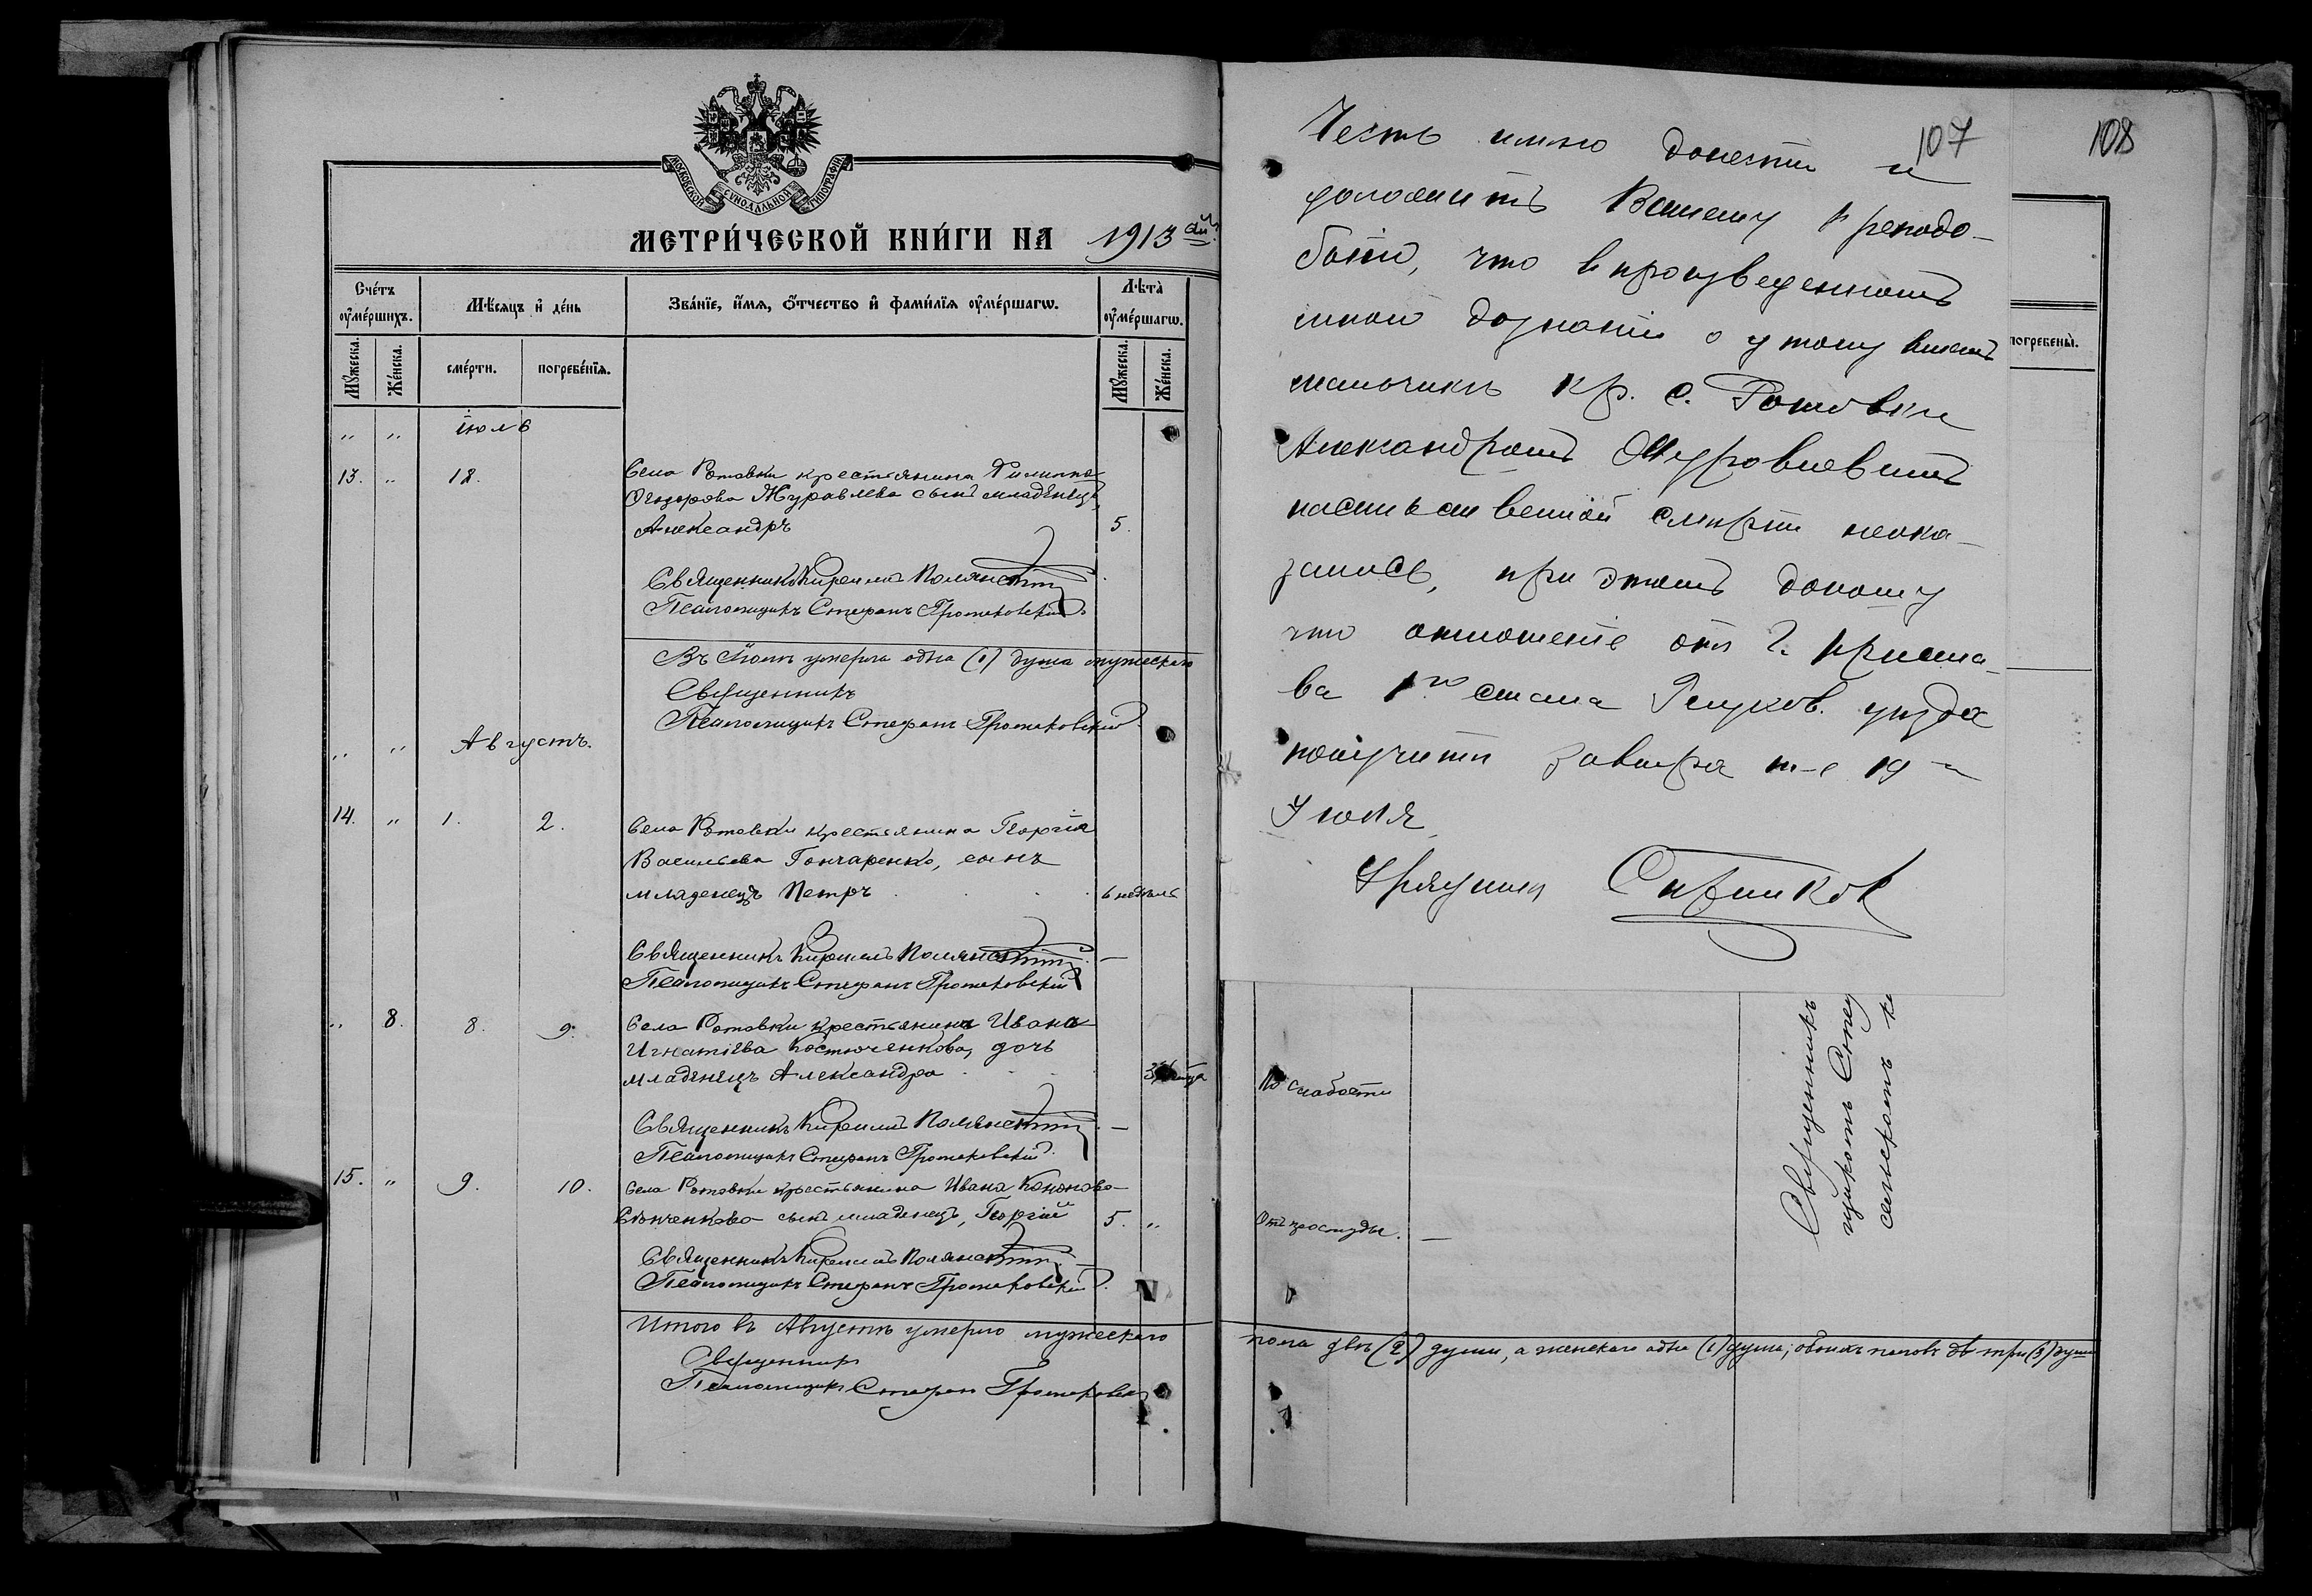 МОСКОВСКОЙ СѴНОДАЛЬНОЙ ТИПОГРАФІИ
МЕТРИ́ЧЕСКОЙ КНИ́ГИ НА 1913 ый
Сче́тъ ᲂу҆ме́ршихъ.
Мѣ́сяцъ и҆ де́нь
Зва́нїе, и҆́мя, ѻ҆́тчество и҆ фами́лїя ᲂу҆ме́ршагѡ.
Лѣта̀ ᲂу҆ме́ршагѡ.
Мꙋ́жеска.
Же́нска.
сме́рти.
погребе́нїя.
Мꙋ́жеска.
Же́нска.
" " Іюль
13. " 18.
Села Ротовки крестьянина Филиппа
Ѳеодорова Журавлева сынъ младенецъ,
Александръ 5.
Священникъ Кириллъ Полянскій
Псаломщикъ Стефанъ Протаковскій.
Въ Іюлѣ умерла одна (1) душа мужескаго
Священникъ
Псаломщикъ Стефанъ Протаковскій.
" " Августъ.
14. " 1. 2. Села Ротовки крестьянина Георгія
Васильева Гончаренко, сынъ
младенецъ Петръ 6 недѣль
Священникъ Кириллъ Полянскій
Псаломщикъ Стефанъ Протаковскій
" 8. 8. 9. Села Ротовки крестьянина Ивана
Игнатіева Костюченкова, дочь
младенецъ Александра
Священникъ Кириллъ Полянскій
Псаломщикъ Стефанъ Протаковскій.
15. " 9. 10. Села Ротовки крестьянина Ивана Кононова
сынъ младенецъ, Георгій 5. "
Священникъ Кириллъ Полянскій
Псаломщикъ Стефанъ Протаковскій.
Итого въ Августѣ умерло мужескаго
Священникъ
Псаломщикъ Стефанъ Протаковскій
107
108
Честь имѣю донести и
доложить Вашему Преподо-
бію, что въ произведенномъ
мною дознаніи о утонувшемъ
мальчикѣ кр. с. Ротовки
Александромъ Журовлевымъ
насильственной смерти неока-
залось, при этомъ доношу
что отношеніе отъ г. Приста-
ва 1го стана уѣзда
получите завтра т-е 19 -
Июля
Урядникъ
погребены̀.
По слабости
Отъ простуды. —
Священникъ
пола двѣ (2) души, а женскаго одна (1) душа; обоихъ половъ три (3) души